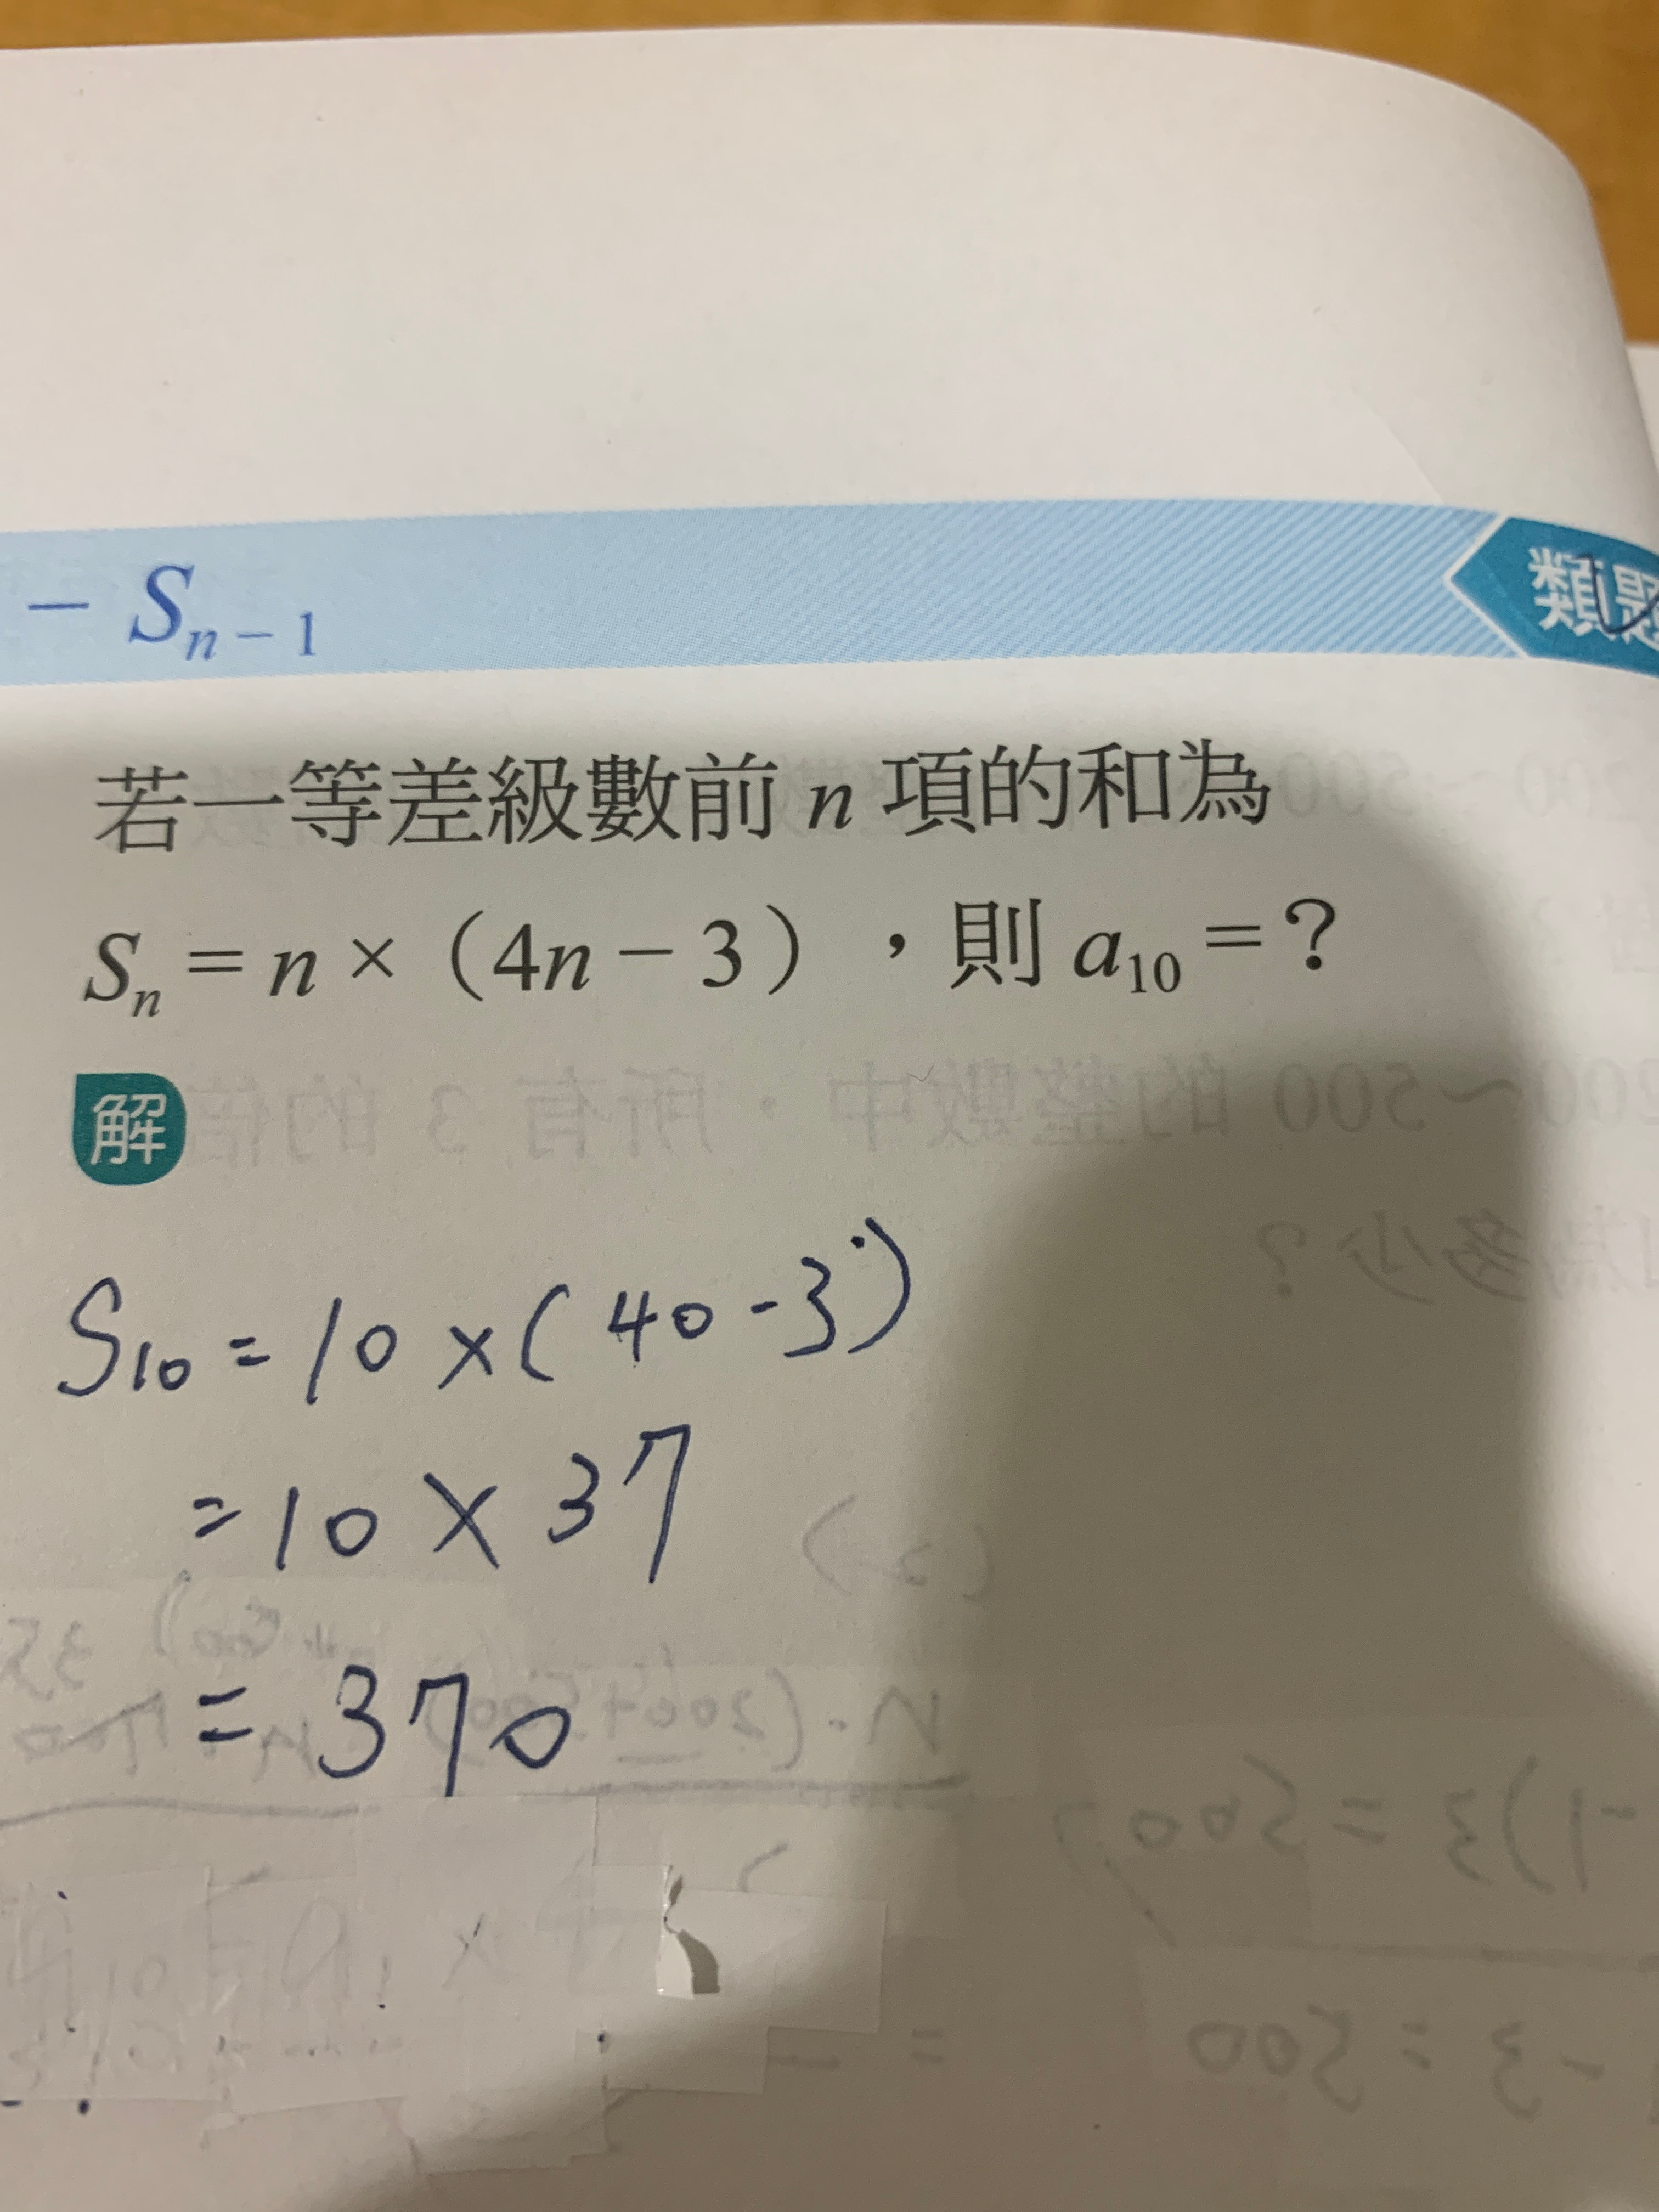 − Sₙ₋₁
類題
若一等差級數前 n 項的和為
Sₙ = n ×（4n − 3），則 a₁₀ =？
解
S₁₀ = 10 × ( 40 - 3 )
= 10 × 37
= 370